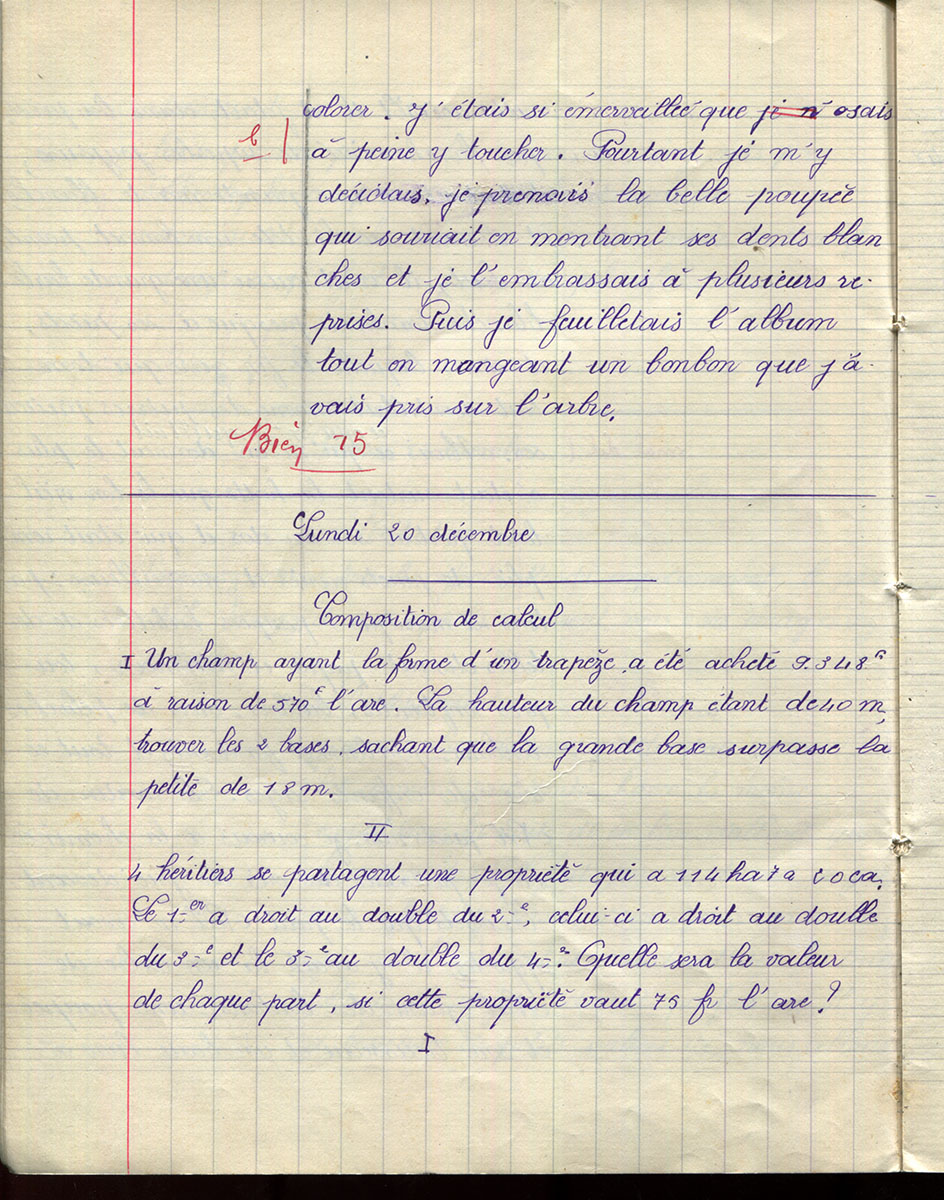 colorer. J'étais si émerveillée que je n'osais
b
à peine y toucher. Pourtant je m'y
décidais, je prenais la belle poupée
qui souriait en montrant ses dents blan
ches et je l'embrassais à plusieurs re-
prises. Puis je feuilletais l'album
tout en mangeant un bonbon que j'a-
vais pris sur l'arbre.
Bien 15
Lundi 20 décembre
Composition de calcul
I Un champ ayant la forme d'un trapèze a été acheté 9.348f
à raison de 570f l'are. La hauteur du champ étant de 40 m,
trouver les 2 bases, sachant que la grande base surpasse la
petite de 18 m.
II
4 héritiers se partagent une propriété qui a 114 ha 7 a
Le 1er a droit au double du 2e, celui-ci a droit au double
du 3e et le 3e au double du 4e. Quelle sera la valeur
de chaque part, si cette propriété vaut 75 fr l'are?
I